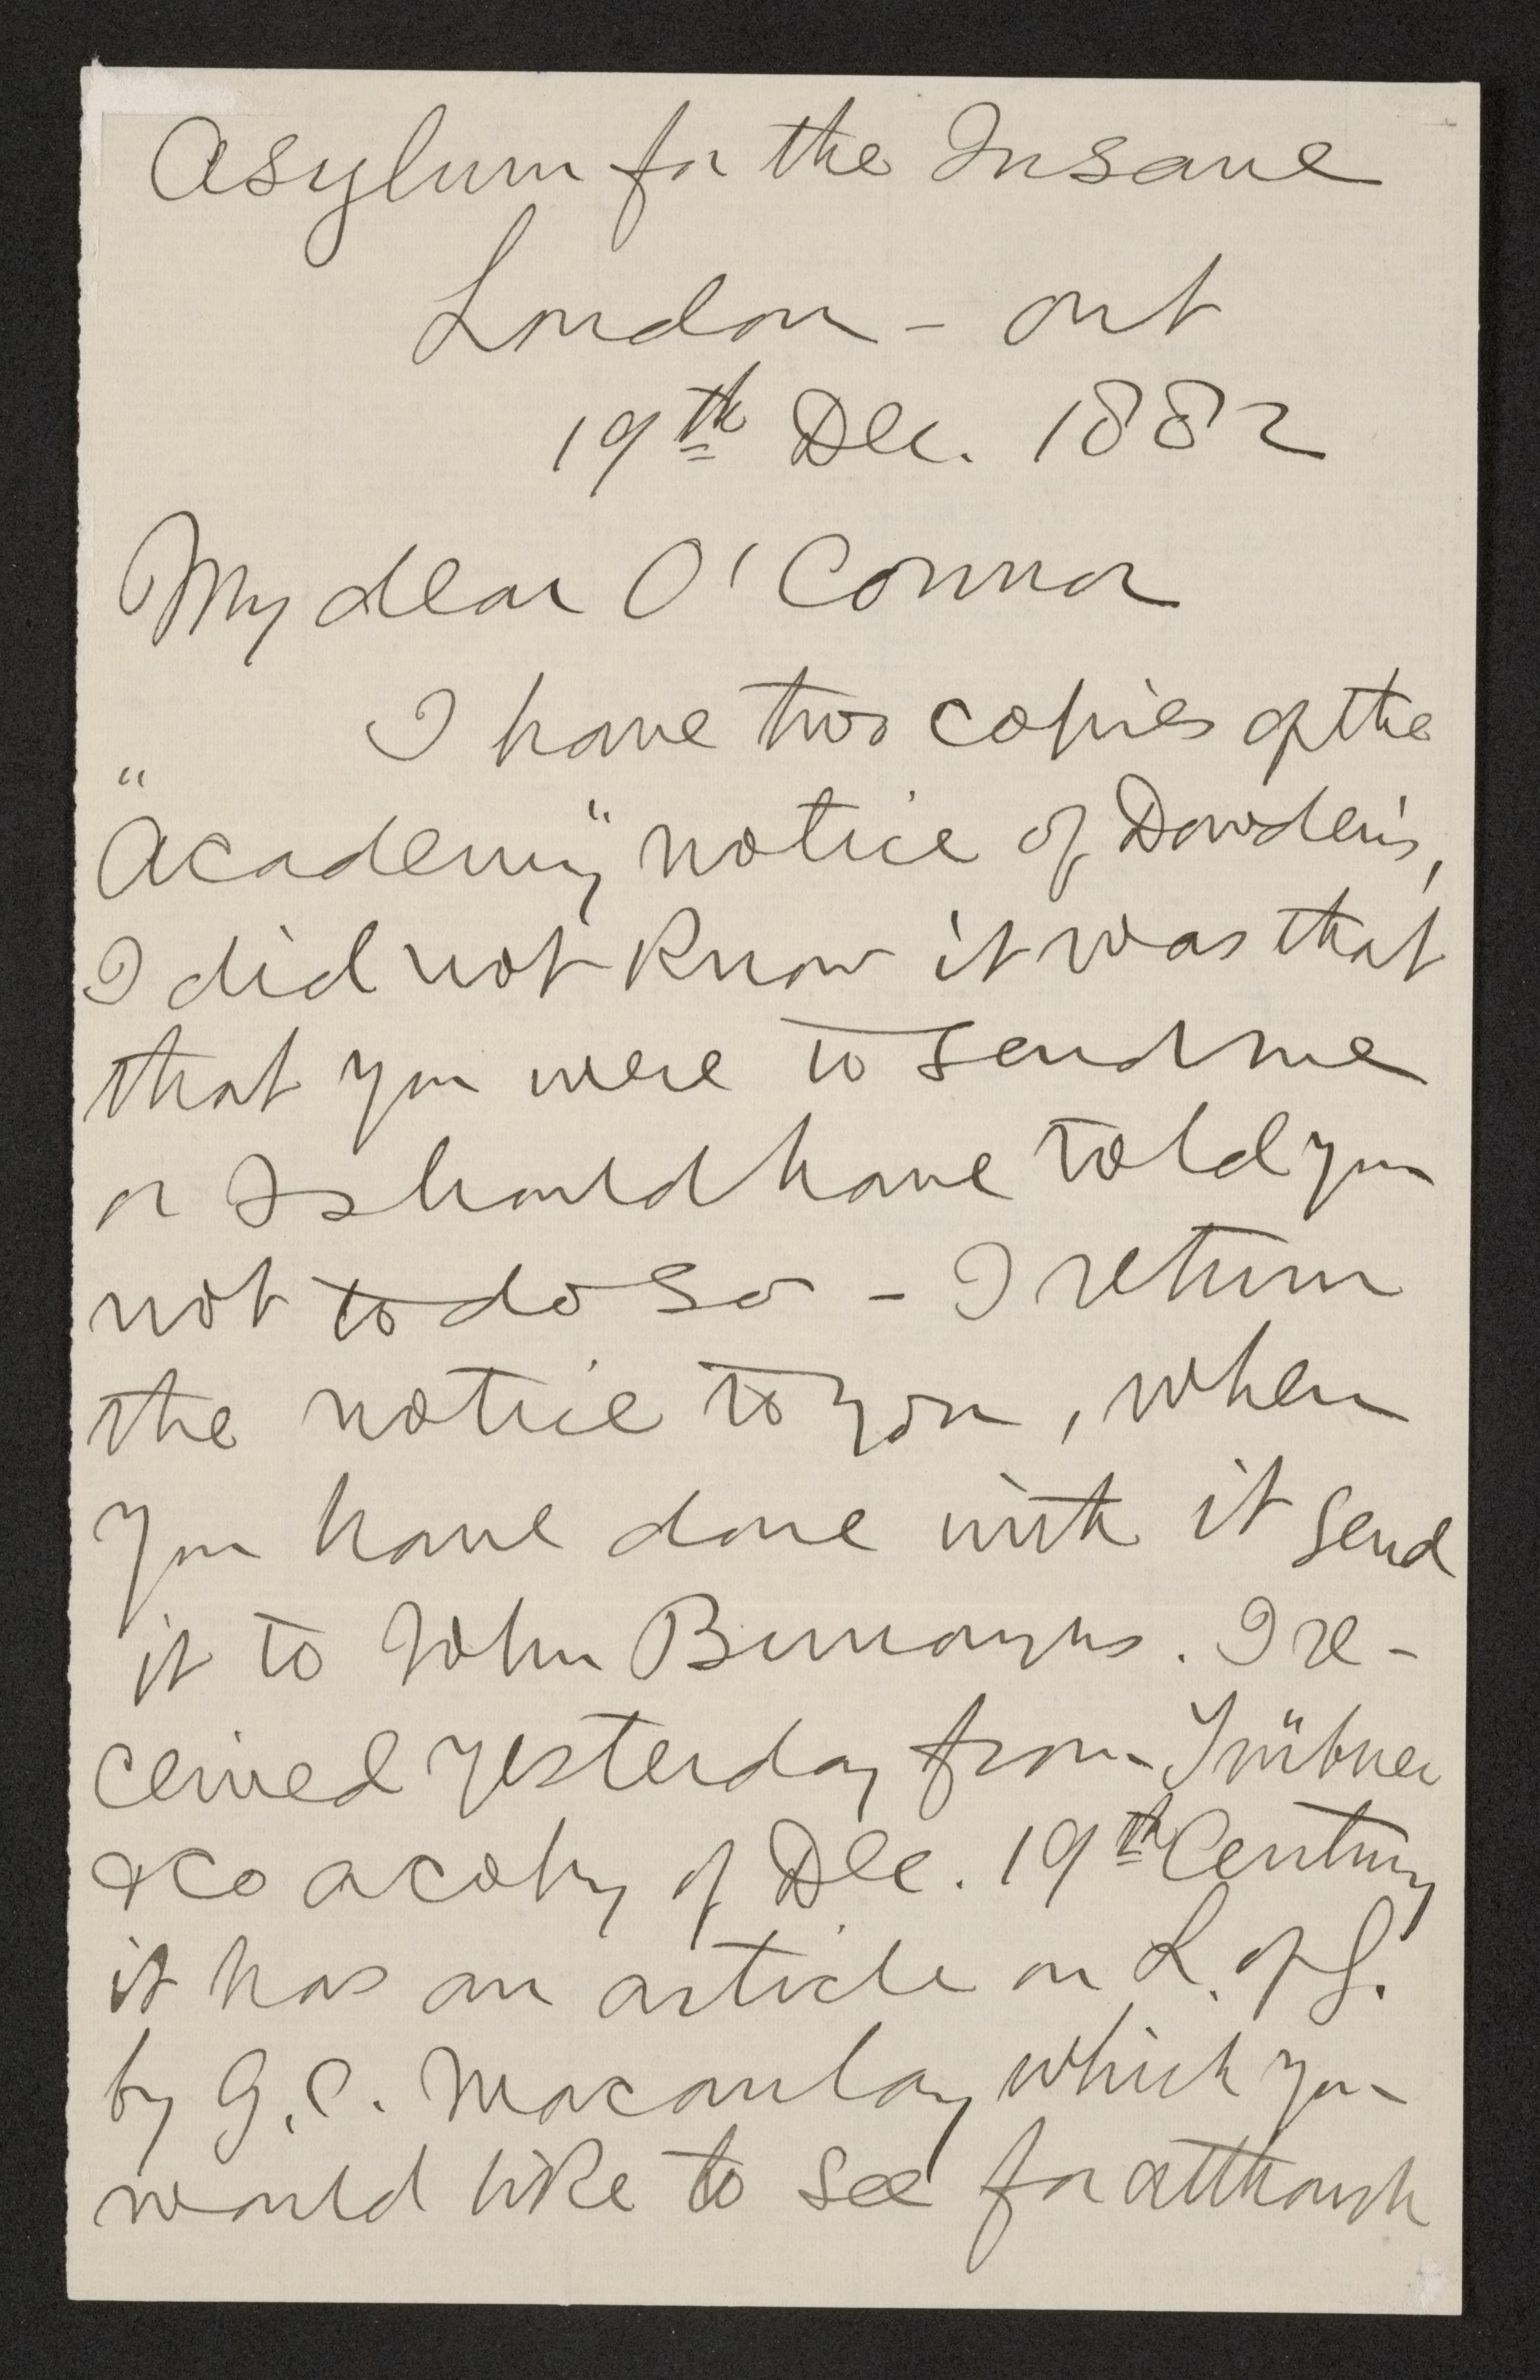 Asylum for the Insane
London - Ont
19th Dec. 1882
My dear O'Connor
I have two copies of the
"Academy" notice of Dowden's,
I did not know it was that
that you were to send me
or I should have told you
not to do so - I return
the notice to you, when
you have done with it send
it to John Burroughs. I re-
ceived yesterday from Trübner
& Co a copy of Dec. 19th Century
it has an article on L. of G.
by G. C. Macaulay which you
would like to see for although